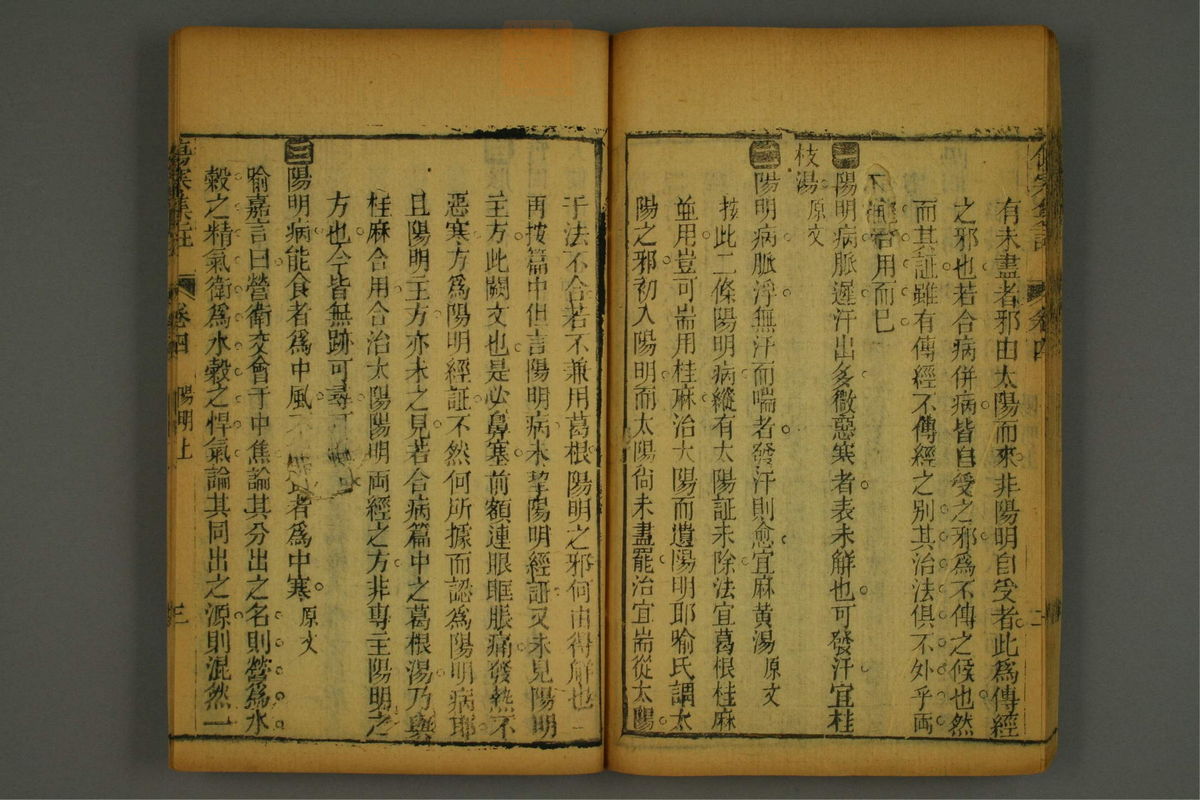 有未盡者邪由太陽而來非陽明自受者此爲傳經
之邪也若合病併病皆自受之邪爲不傳之候也然
而其証雖有傳經不傳經之别其治法俱不外乎両
合用而已
一陽明病脈遲汗出多微惡寒者表未解也可發汗宜桂
枝湯原文
二陽明病脈浮無汗而喘者發汗則愈宜麻黄湯原文
按此二條陽明病縱有太陽証未除法宜葛根桂麻
並用豈可耑用桂麻治太陽而遺陽明耶喻氏謂太
陽之邪初入陽明而太陽尙未盡罷治宜耑從太陽
二
于法不合若不兼用葛根陽明之邪何由得解也
再按篇中但言陽明病未挈陽明經証又未見陽明
主方此闕文也是必鼻塞前額連眼眶脹痛發熱不
惡寒方爲陽明經証不然何所據而認爲陽明病耶
且陽明主方亦未之見若合病篇中之葛根湯乃與
桂麻合用合治太陽陽明両經之方非專主陽明之
方也今皆無跡可尋
三陽明病能食者爲中風不能食者爲中寒原文
喻嘉言曰營衛交會于中焦論其分出之名則營爲水
穀之精氣衛爲水穀之悍氣論其同出之源則混然一
傷寒集註 卷四 陽明上 三